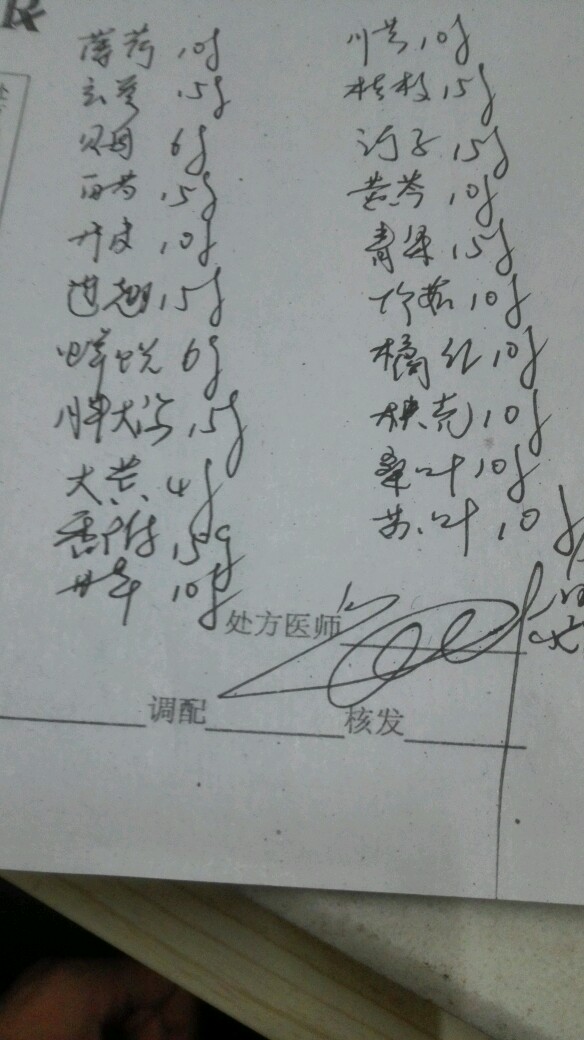 R
薄荷 10g 川芎 10g
玄参 15g 桔梗 15g
贝母 6g 诃子 15g
白芍 15g 黄芩 10g
丹皮 10g 青果 15g
连翘 15g 竹茹 10g
蝉蜕 6g 橘红 10g
胖大海 15g 枳壳 10g
大黄 4g 桑叶 10g
香附 15g 苏叶 10g
丹参 10g
处方医师
调配 核发